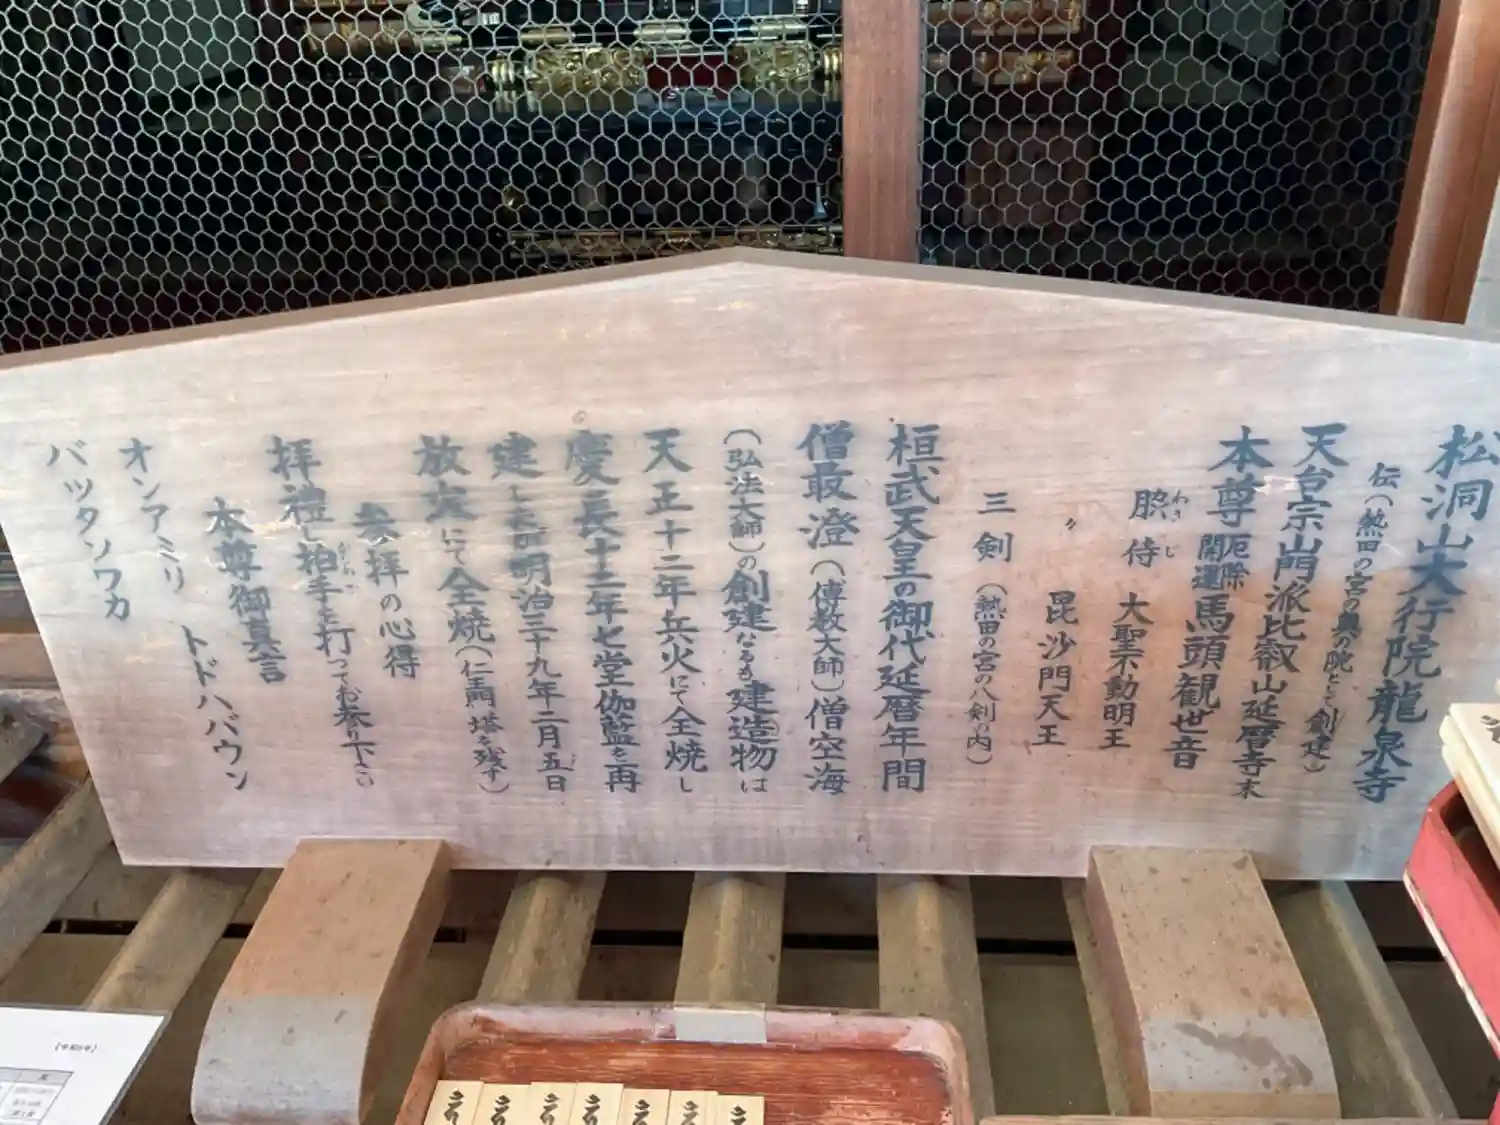 松洞山大行院龍泉寺
伝(熱田の宮の奥の院として創建)
天台宗山門派比叡山延暦寺末
本尊 厄除開運 馬頭観世音
脇侍 大聖不動明王
わきじ
〃 毘沙門天王
三剣(熱田の宮の八剣の内)
桓武天皇の御代延暦年間
僧最澄(傳教大師)僧空海
(弘法大師)の創建なるも建造物は
天正十二年兵火にて全焼し
慶長十二年七堂伽藍を再
建し
明治三十九年二月五日
放火にて全焼(仁王門、塔を残す)
参拝の心得
拝禮し拍手を打つてお参り下さい
本尊御真言
オンアミリ トドハバウン
バツタソワカ